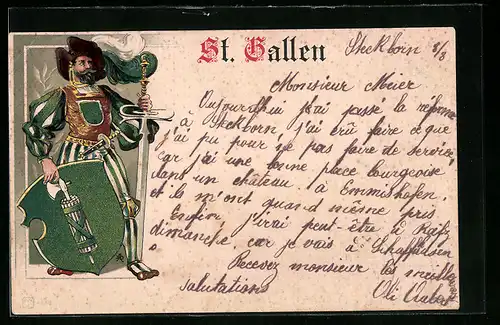 St. Gallen
Steckborn 8/3
Monsieur Meier
Aujourd'hui j'ai passé la réforme
à Steckborn, j'ai crû faire ce que
j'ai pu pour ne pas faire de service
car j'ai une bonne place bourgeoise
dans un château à Emmishofen,
et ils m'ont quand même pris
Enfin j'irai peut-être à
dimanche, car je vais à Schaffhausen
Recevez monsieur les meille
salutations